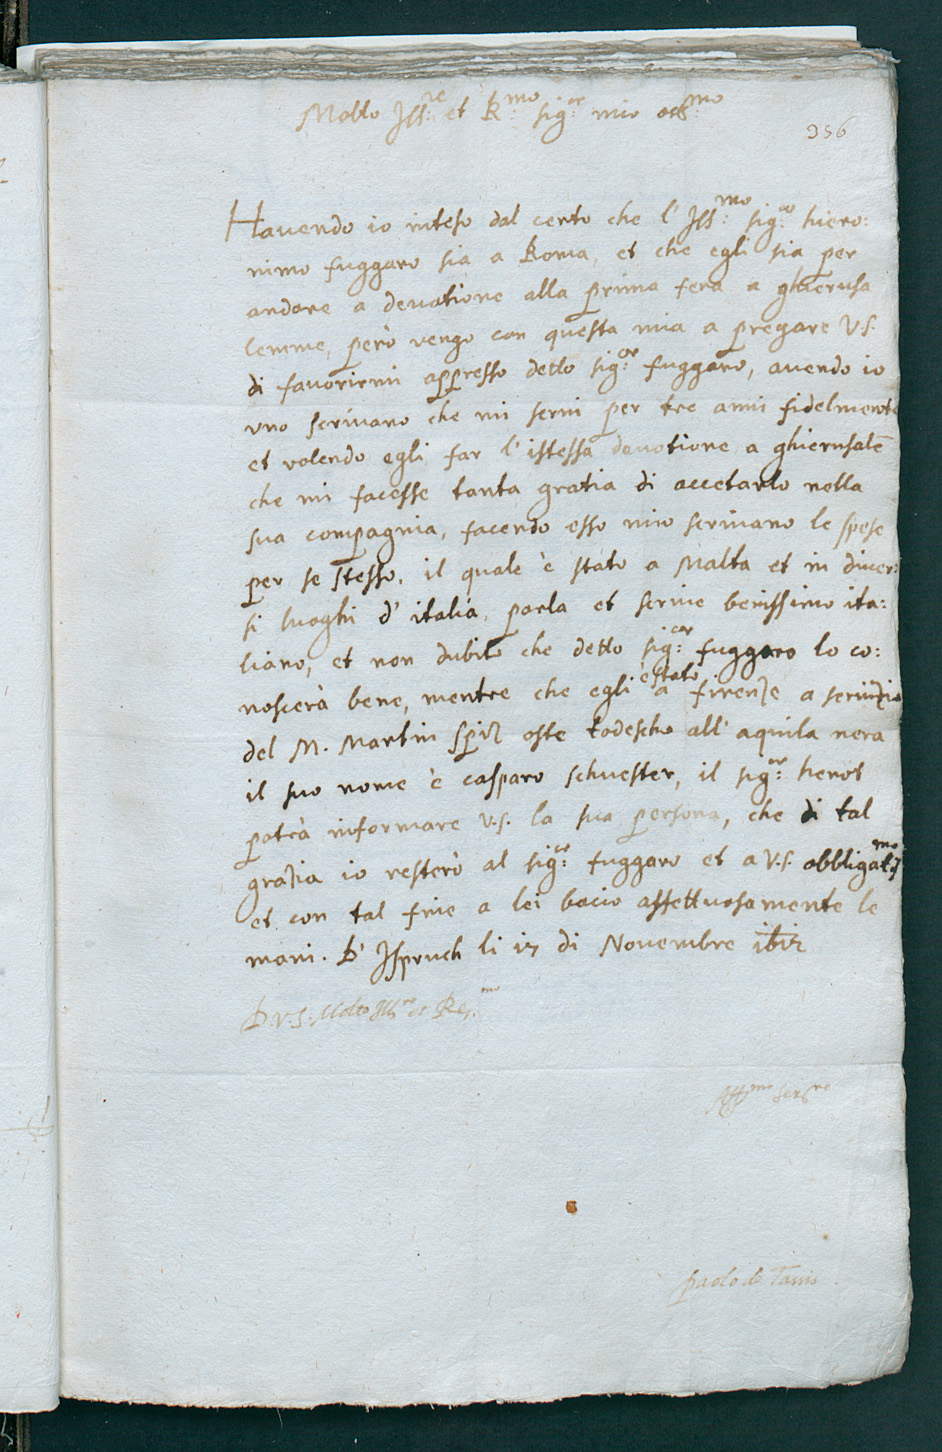 Molto Ill:re et R:mo sig:or mio oss:mo
356
Havendo io inteso dal certo che l' Ill:mo sig:or hiero:
nimo fuggaro sia a Roma, et che egli sia per
andare a devotione alla prima fera a ghierusa
lemme, però vengo con questa mia a pregare V.S.
di favorirmi appresso detto sig:or fuggaro, avendo io
uno scrivano che mi servi per tre anni fidelmente
et volendo egli far l'istessa devotione a ghierusalē
che mi facesse tanta gratia di accetarlo nella
sua compagnia, facendo esso mio scrivano le spese
per se stesso, il quale è stato a Malta et in diver:
si luoghi d'italia, parla et scrive benissimo ita:
liano, et non dubito che detto sig:or fuggaro lo co:
noscerà bene, mentre che egli è stato a firenze a servitio
del M. Martin oste todescho all' aquila nera
il suo nome è casparo schuester, il sig:or herot
potrà informare V.S. la sua persona, che di tal
gratia io resterò al sig:or fuggaro et a V.S. obbligat.mo
et con tal fine a lei bacio affettuosamente le
mani. D' Ispruch li di Novembre
D. V. S. Molto Ill.re et Re.mo
Aff.mo Ser.re
paolo de Tassis